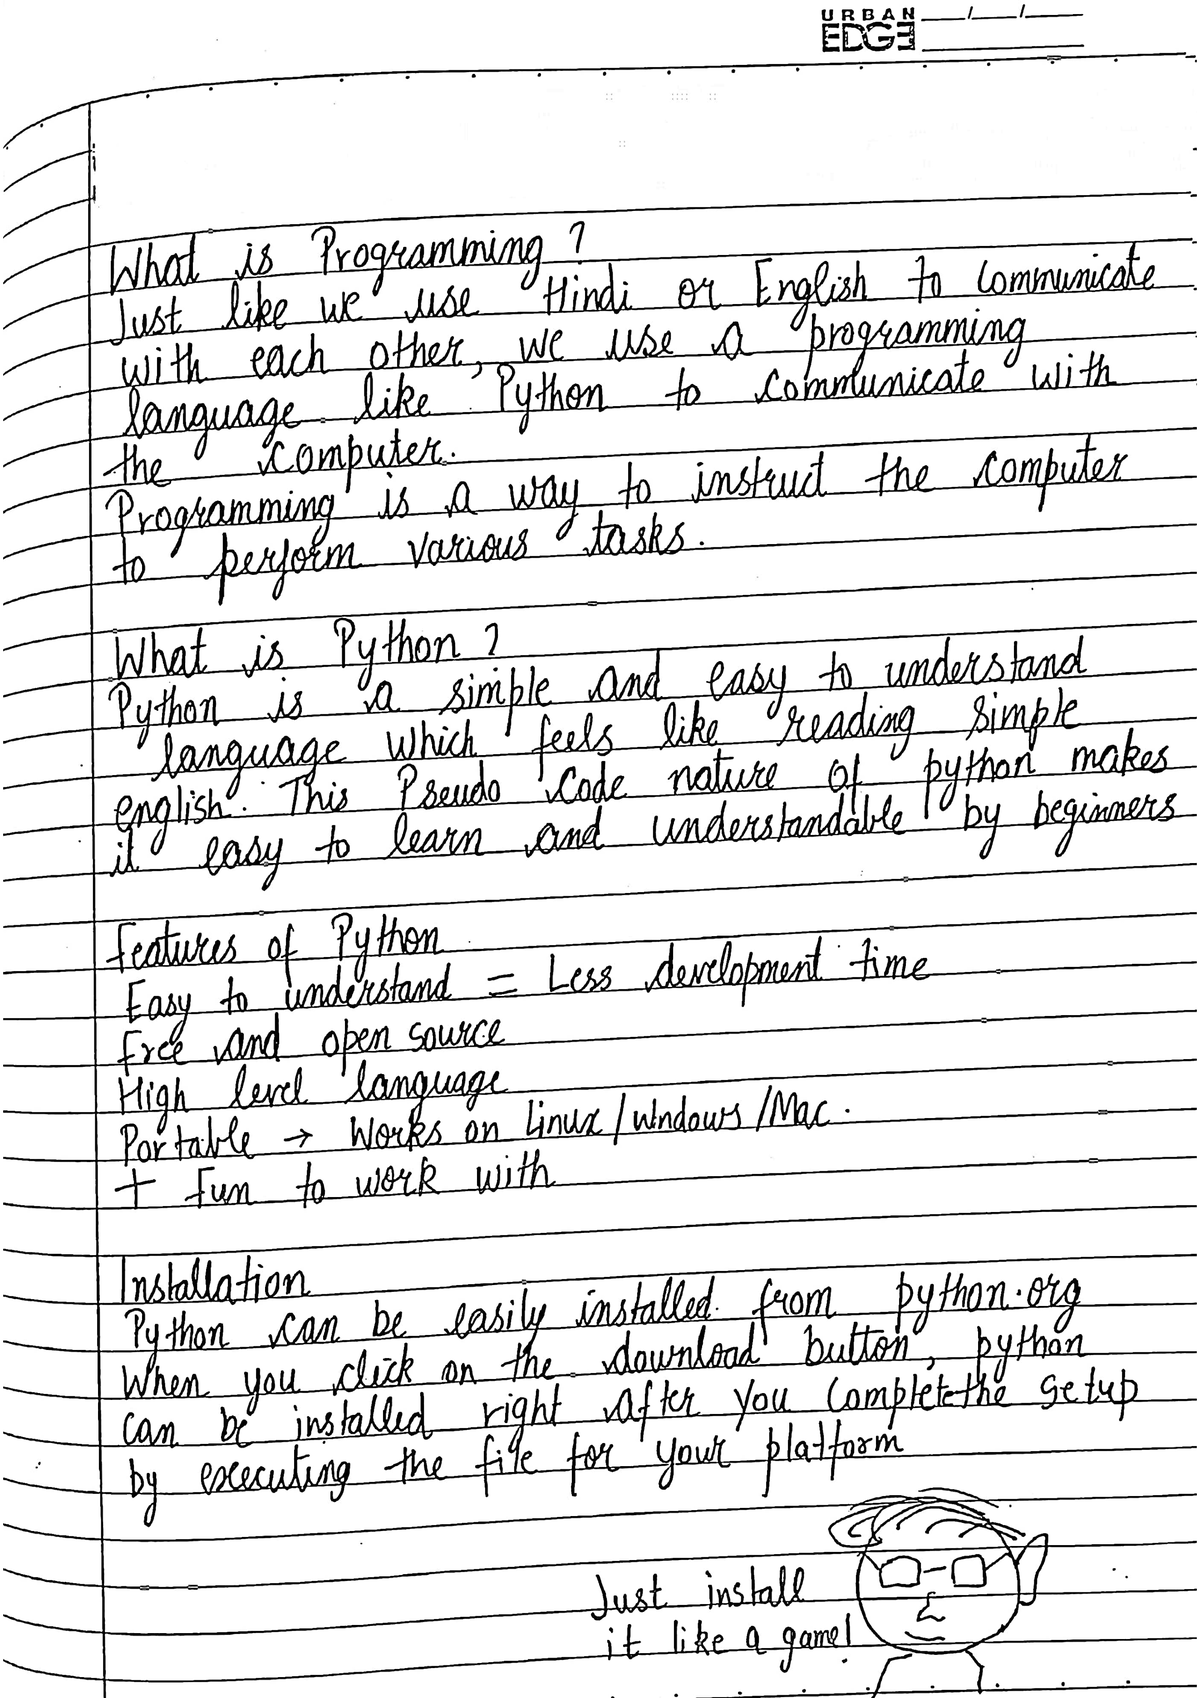 URBAN
EDGE
What is Programming?
Just like we use Hindi or English to communicate
with each other, we use a programming
language like Python to communicate with
the computer.
Programming is a way to instruct the computer
to perform various tasks.
What is Python?
Python is a simple and easy to understand
language which feels like reading simple
english. This Pseudo code nature of python makes
it easy to learn and understandable by beginners
Features of Python
Easy to understand = Less development time
Free and open source
High level language
Portable → Works on Linux/Windows/Mac.
+ Fun to work with
Installation
Python can be easily installed from python.org
When you click on the download button, python
can be installed right after you complete the setup
by executing the file for your platform
Just install
it like a game!